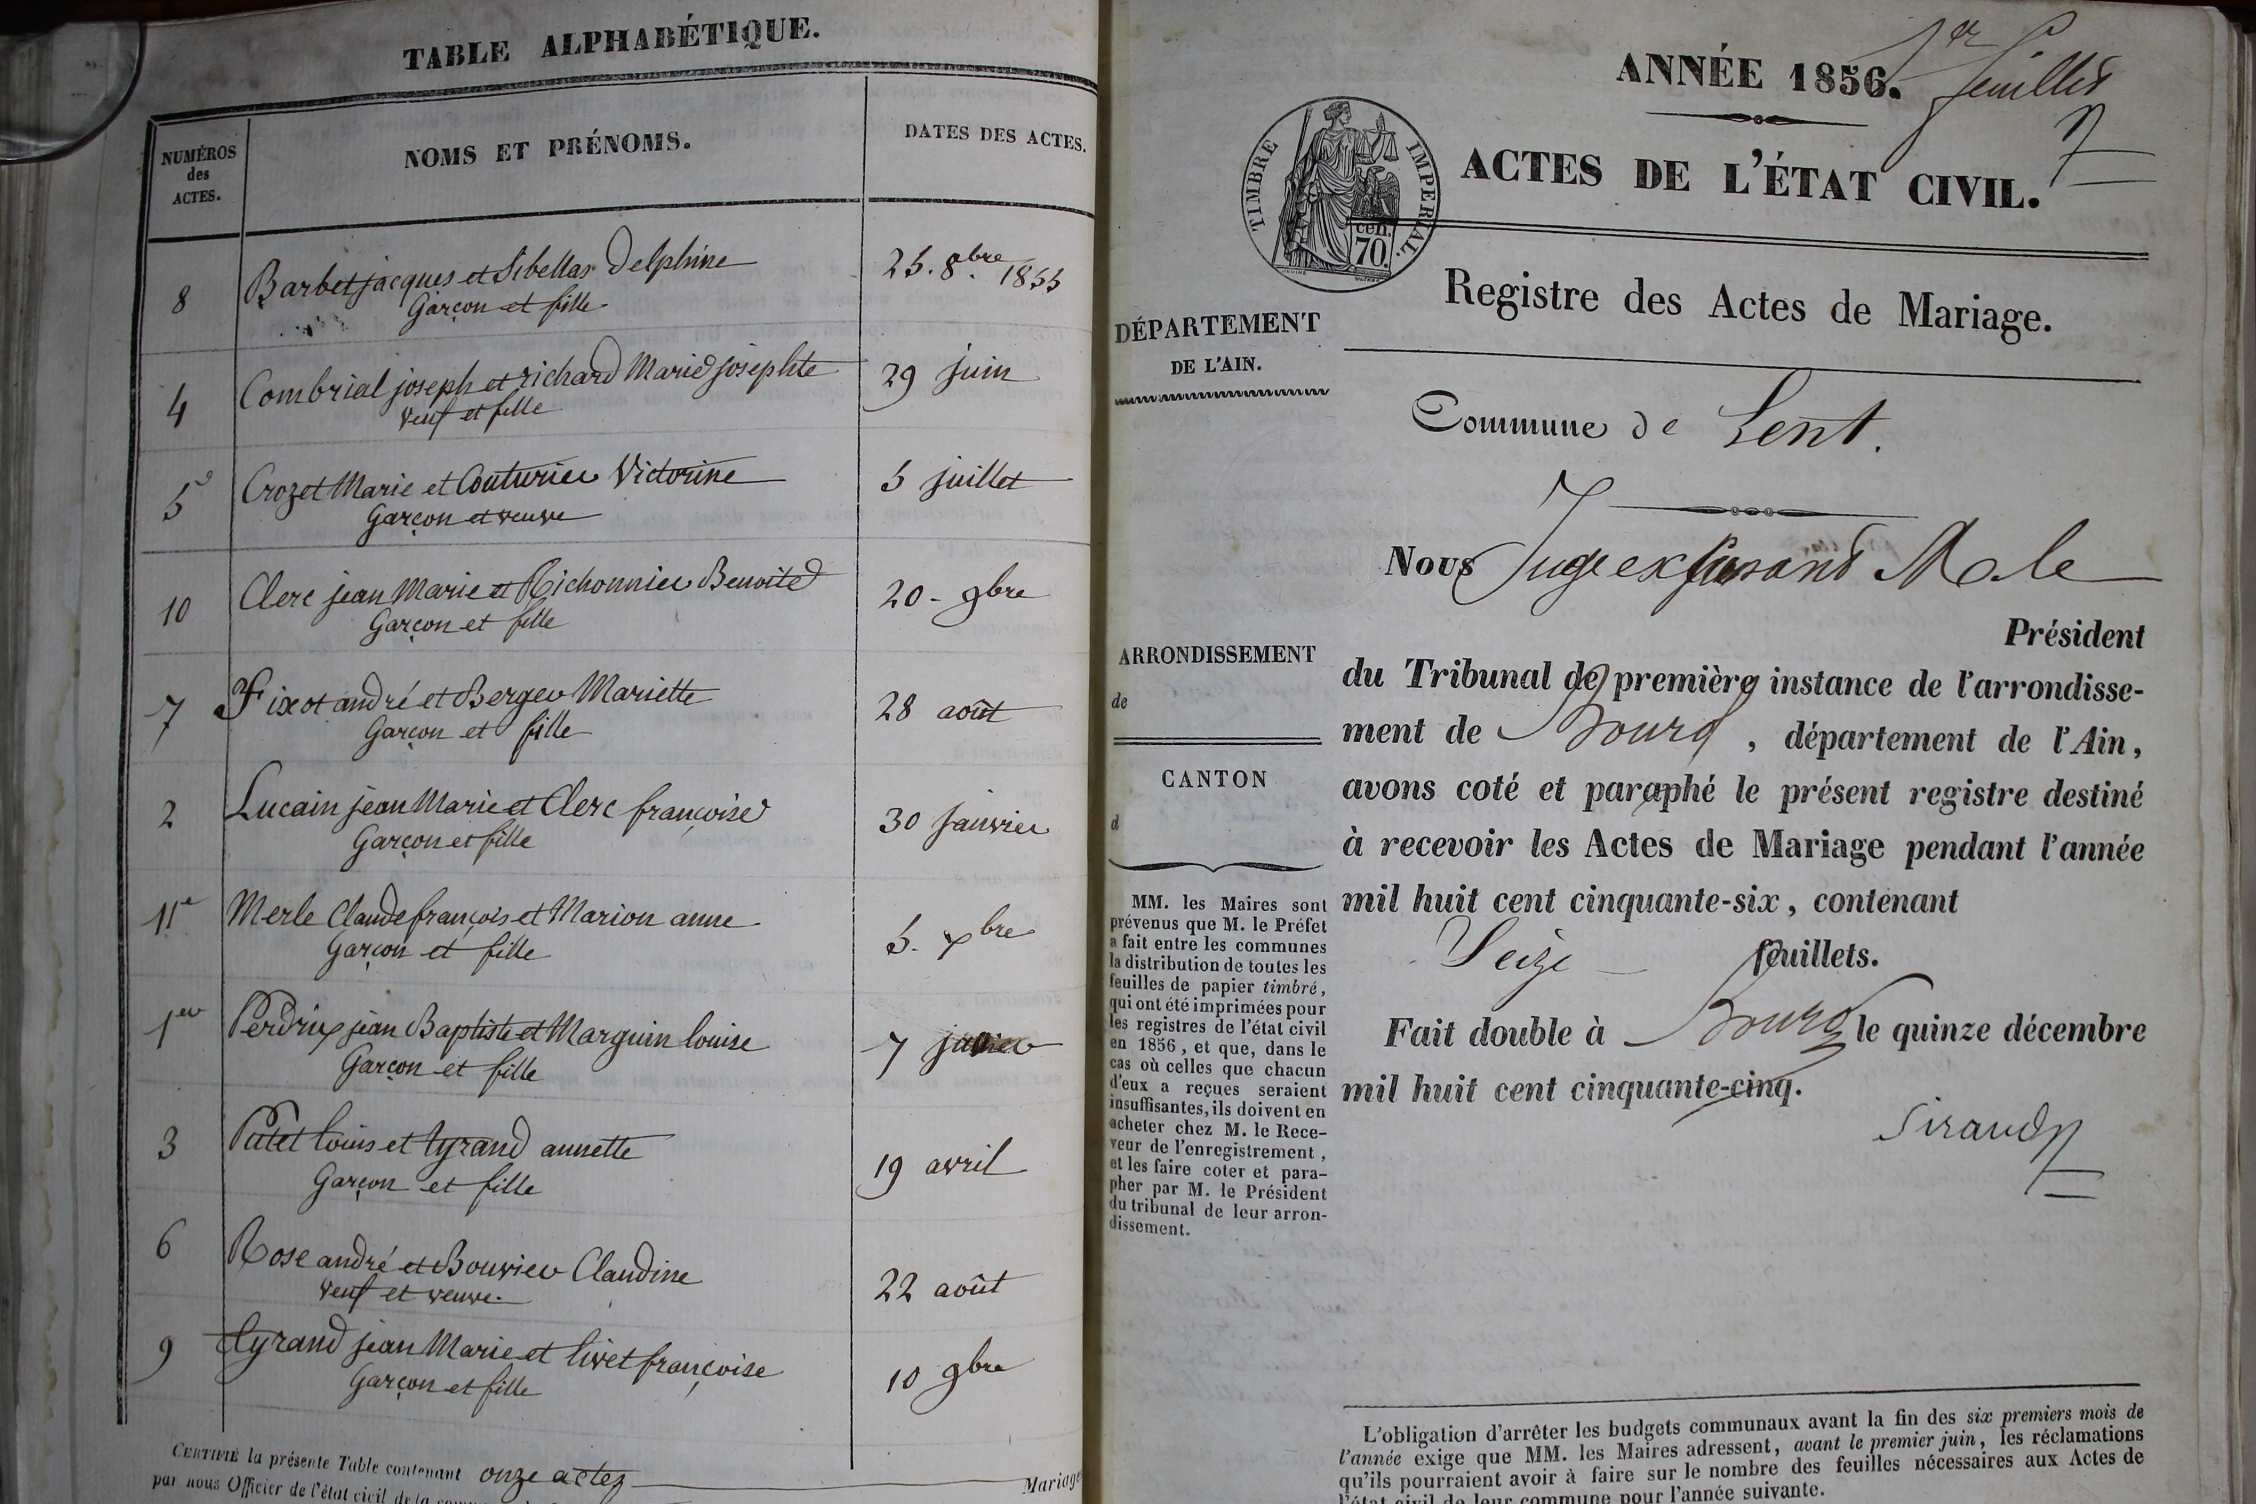 TABLE ALPHABÉTIQUE.
NUMÉROS
des
ACTES.
NOMS ET PRÉNOMS.
DATES DES ACTES.
8 Barbet jacques et Sibellas Delphine 25. 8bre. 1855
Garçon et fille
4 Combrial joseph et richard Marie josephte 29 juin
veuf et fille
5e Crozet Marie et Couturier Victorine 5 juillet
Garçon et veuve
10 Clerc jean Marie et Richonnier Benoite 20 - 9bre
Garçon et fille
7 Fixot andré et Berger Mariette 28 août
Garçon et fille
2 Lucain jean Marie et Clerc françoise 30 janvier
Garçon et fille
11e Merle Claude françois et Marion anne 5. Xbre
Garçon et fille
1er Perdrix jean Baptiste et Marguin louise 7 janvier
Garçon et fille
3 Putet louis et tyrand annette 19 avril
Garçon et fille
6 Rose andré et Bouvier Claudine 22 août
veuf et veuve.
9 tyrand jean Marie et livet françoise 10 9bre
Garçon et fille
CERTIFIÉ la présente Table contenant onze actes Mariage
par nous Officier de l'état civil de la
1er feuillet
ANNÉE 1856.
TIMBRE IMPERIAL.
cen.
70.
ACTES DE L'ÉTAT CIVIL.
Registre des Actes de Mariage.
DÉPARTEMENT
DE L'AIN.
Commune de Lent.
Nous Juge Male
Président
ARRONDISSEMENT
de
du Tribunal de première instance de l'arrondisse-
ment de Bourg, département de l'Ain,
CANTON
d
avons coté et paraphé le présent registre destiné
à recevoir les Actes de Mariage pendant l'année
mil huit cent cinquante-six, contenant
Seize feuillets.
Fait double à Bourg le quinze décembre
mil huit cent cinquante-cinq.
Sirand
MM. les Maires sont
prévenus que M. le Préfet
a fait entre les communes
la distribution de toutes les
feuilles de papier timbré,
qui ont été imprimées pour
les registres de l'état civil
en 1856, et que, dans le
cas où celles que chacun
d'eux a reçues seraient
insuffisantes, ils doivent en
acheter chez M. le Rece-
veur de l'enregistrement,
et les faire coter et para-
pher par M. le Président
du tribunal de leur arron-
dissement.
L'obligation d'arrêter les budgets communaux avant la fin des six premiers mois de
l'année exige que MM. les Maires adressent, avant le premier juin, les réclamations
qu'ils pourraient avoir à faire sur le nombre des feuilles nécessaires aux Actes de
l'état civil de leur commune pour l'année suivante.